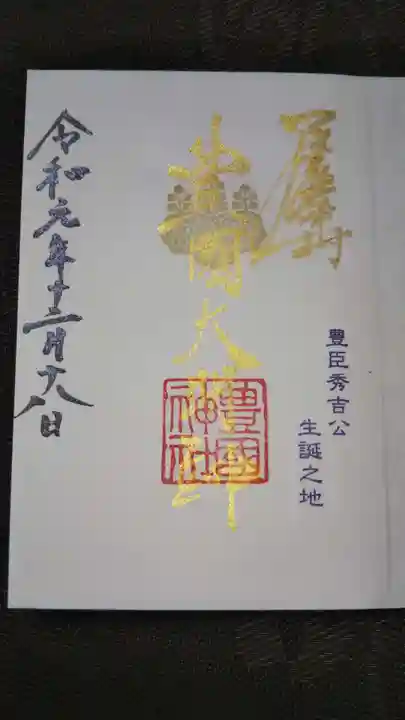 豊臣秀吉公
生誕之地
豊國大明神
豊國
神社
令和元年十二月十八日